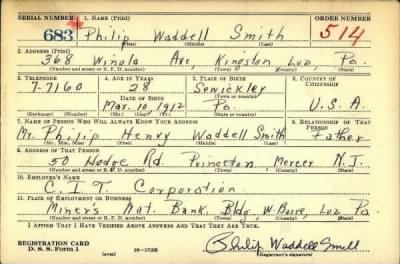 SERIAL NUMBER 1. NAME (Print) ORDER NUMBER
683 Philip Waddell Smith 514
(First) (Middle) (Last)
2. ADDRESS (Print)
368 Winola Ave, Kingston Luz, Pa.
(Number and street or R. F. D. number) (Town) (County) (State)
3. TELEPHONE 4. AGE IN YEARS 5. PLACE OF BIRTH 6. COUNTRY OF CITIZENSHIP
7-7160 28 Sewickley
DATE OF BIRTH (Town or county)
Mar. 10, 1912 Pa. U.S.A.
(Exchange) (Number) (Mo.) (Day) (Yr.) (State or country)
7. NAME OF PERSON WHO WILL ALWAYS KNOW YOUR ADDRESS 8. RELATIONSHIP OF THAT PERSON
Mr. Philip Henry Waddell Smith Father
(Mr., Mrs., Miss) (First) (Middle) (Last)
9. ADDRESS OF THAT PERSON
50 Hodge Rd. Princeton Mercer N.J.
(Number and street or R. F. D. number) (Town) (County) (State)
10. EMPLOYER'S NAME
C.I.T. Corporation
11. PLACE OF EMPLOYMENT OR BUSINESS
Miners Nat. Bank. Bldg, W. Barre, Luz, Pa.
(Number and street or R. F. D. number) (Town) (County) (State)
I AFFIRM THAT I HAVE VERIFIED ABOVE ANSWERS AND THAT THEY ARE TRUE.
REGISTRATION CARD
D. S. S. Form 1 (over) Philip Waddell Smith
(Registrant's signature)